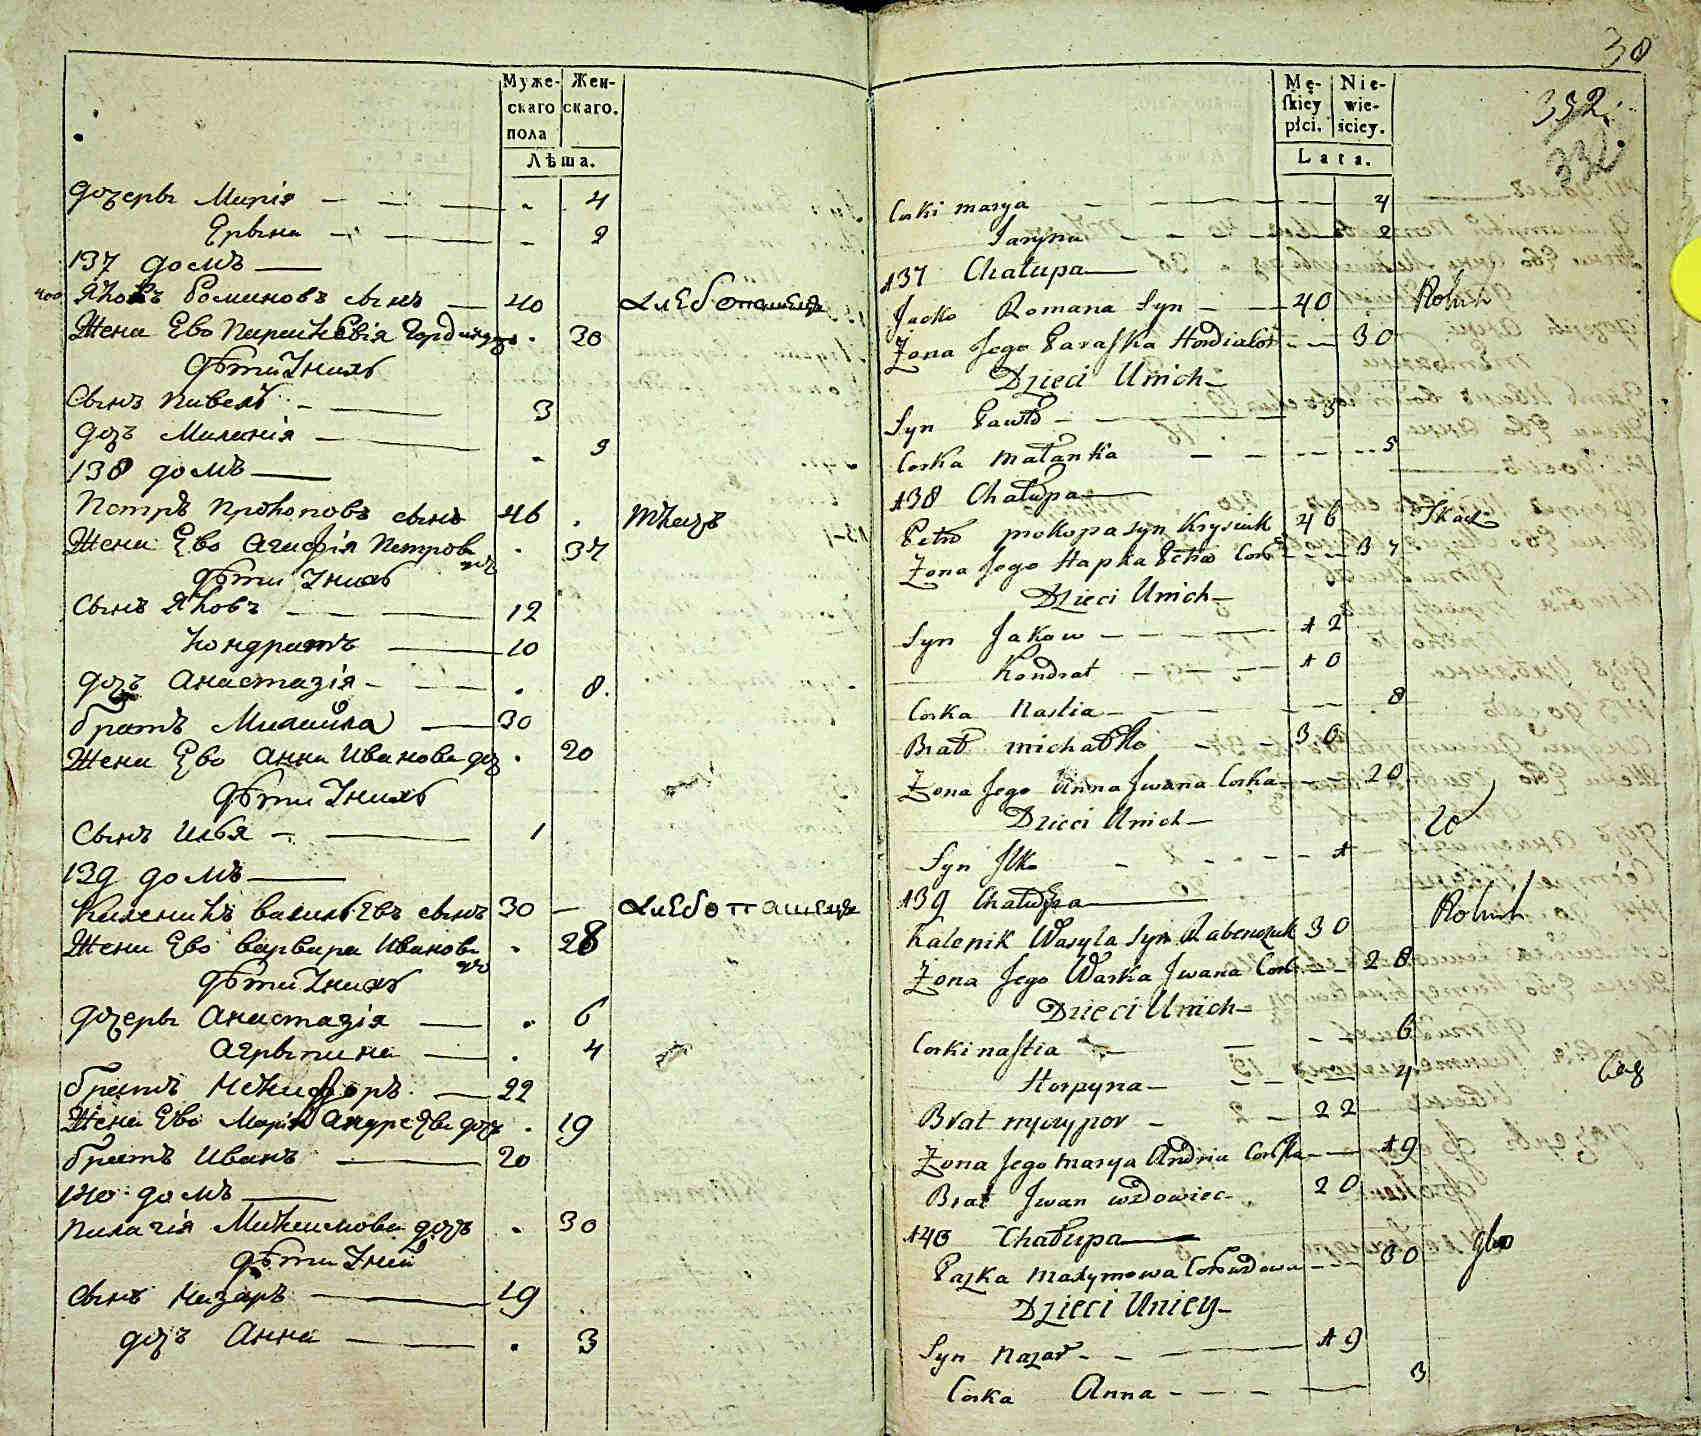 Муже-
скаго
пола
Жен-
скаго.
Лѣта.
дочерь Марія 4
Ерына 2
137 домъ
400
Яковъ Романовъ сынъ 40 хлебопашецъ
Жена Ево Параскевія Гордия дочь 30
Дѣти Унихъ
Сынъ Павелъ 3
дочь Маланія 5
138 домъ
Петръ Прокоповъ сынъ 46 ткачъ
Жена Ево Агафія Петрова дочь 37
Дѣти Унихъ
Сынъ Яковъ 12
Кондратъ 10
дочь Анастазія 8.
братъ Михайла 30
Жена Ево Анна Иванова доч 20
Дѣти Унихъ
Сынъ Илья 1
139 домъ
Каленикъ Васильевъ сынъ 30 хлебопашецъ
Жена Ево Варвара Иванова дочь 28
Дѣти Унихъ
дочерь Анастазія 6
Агрыпина 4
братъ Никифоръ 22
Жена Ево Марія Андреева дочь 19
братъ Иванъ 20
140 домъ
Палагія Максимова дочь 30
Дѣти Уней
Сынъ Назаръ 19
дочь Анна 3
30
332.
332
Mę-
skiey
płci.
Nie-
wie-
ściey.
Lata.
Corki Marya 4
Jaryna 2
137 Chałupa
Jacko Romana Syn 40 Rolnik
Żona Jego Paraska Hordia Cor 30
Dzieci Unich
Syn Pawło 3
Corka Małanka 5
138 Chałupa
Petro Prokopa syn Krysiuk 46 Tkacz
Żona Jego Hapka Petra Cor 37
Dzieci Unich
Syn Jakow 12
Kondrat 10
Corka Nastia 8
Brat Michałko 30
Żona Jego Anna Jwana Corka 20
Dzieci Unich
Syn Jlko 1
139 Chałupa
Kalenik Wasyla Syn Rabenczuk 30 Rolnik
Żona Jego Warka Jwana Cor 28
Dzieci Unich
Corki Nastia 6
Horpyna 4
Brat Nyczypor 22
Żona Jego Marya Andria Corka 19
Brat Jwan wdowiec 20
140 Chałupa
Pazka Maxymowa Cor wdowa 30
Dzieci Unicy
Syn Nazar 19
Corka Anna 3